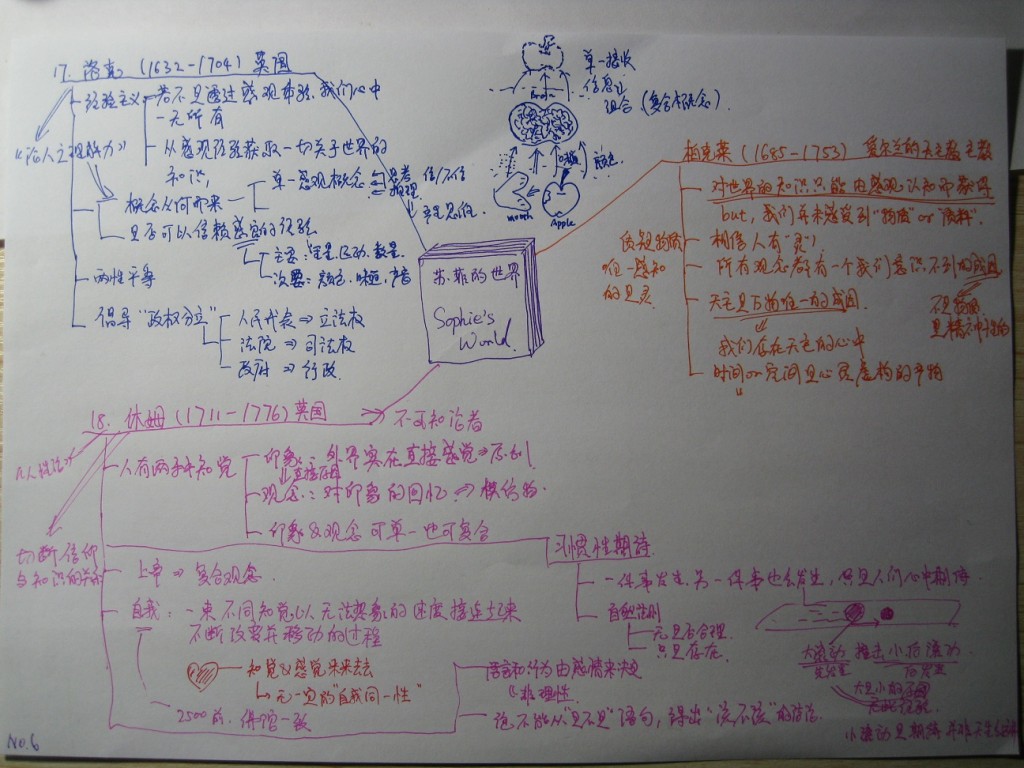 17. 洛克 (1632-1704) 英国
经验主义
若不是透过感观体验,我们心中
一无所有
从感观经验获取一切关于世界的
知识,
《论人之理解力》
概念从何而来
单一感观概念
思考
推理
信/不信
是否可以信赖感官的经验
主要:重量、运动、数量
次要:颜色、味道、声音
两性平等
倡导“政权分立”
人民代表⇒立法权
法院⇒司法权
政府⇒行政
单一接收
信息过
组合(复合概念).
Brain
颜色
mouth
Apple
苏菲的世界
Sophie's
World.
柏克莱 (1685-1753) 爱尔兰的天主教主教
对世界的知识只能由感观认知而获得
but, 我们并未感受到“物质”or“质料”.
相信人有“灵”
质疑物质
唯一感知
的是灵
所有观念都有一个我们意识不到的成因
不是物质
是精神的
天主是万物唯一的成因
我们存在天主的心中
时间or空间是心灵虚构的产物
18. 休姆 (1711-1776) 英国
不可知论者
《人性论》
人有两种知觉
印象:外界实在直接感觉⇒原创
观念:对印象的回忆⇒模仿物
印象&观念 可单一也可复合
切断信仰
与知识的关系
上帝⇒复合观念.
自我:一束不同知觉以人无法想象的速度接连起来
不断改变并移动的过程
知觉&感觉来来去去
无一定的“自我同一性”
2500前,佛陀一致
习惯性期待
一件事发生,另一件事也会发生,只是人们心中期待.
自然法则
无是否合理.
只是存在.
大滚动
先发生
推击小的滚动
后发生
小滚动是期待并非天生
言和行为由感情来决定
非理性.
说不能从“是不是”语句,得出“该不该”的结论.
No.6